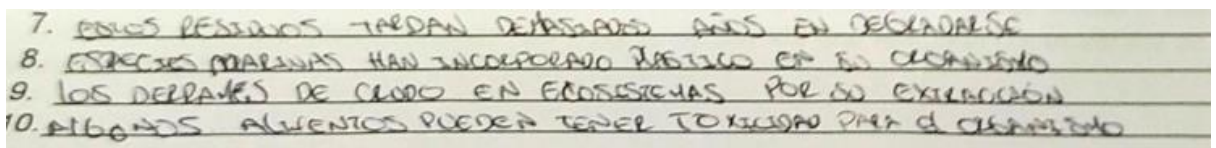 7. ESTOS RESIDUOS TARDAN DEMASIADOS AÑOS EN DEGRADARSE
8. ESPECIES MARINAS HAN INCORPORADO PLASTICO EN SU ORGANISMO
9. LOS DERRAMES DE CRUDO EN ECOSISTEMAS POR SU EXTRACCIÓN
10. ALGUNOS ALIMENTOS PUEDEN TENER TOXICIDAD PARA el ORGANISMO